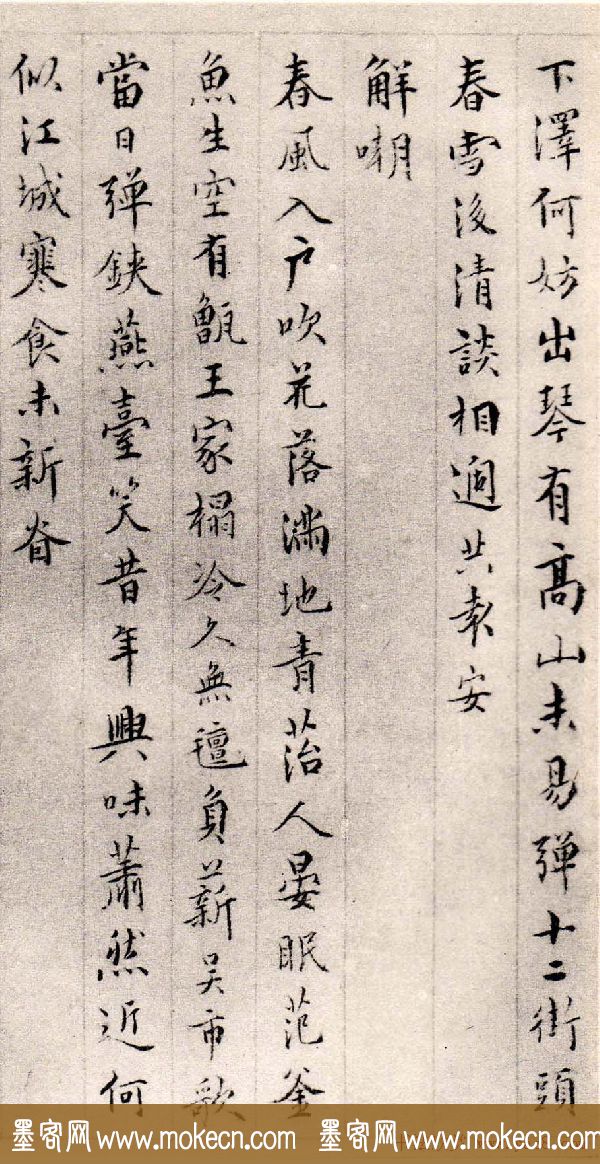 下澤何妨出琴有高山未易彈十二街頭
春雪後清談相過共袁安
解嘲
春風入户吹花落滿地青菭人晏眠范釜
魚生空有甑王家榻冷久無氊負薪吴市歌
當日彈鋏燕臺笑昔年興味蕭然近何
似江城寒食未新
墨客网 www.mokecn.com 墨客网 www.mokecn.com